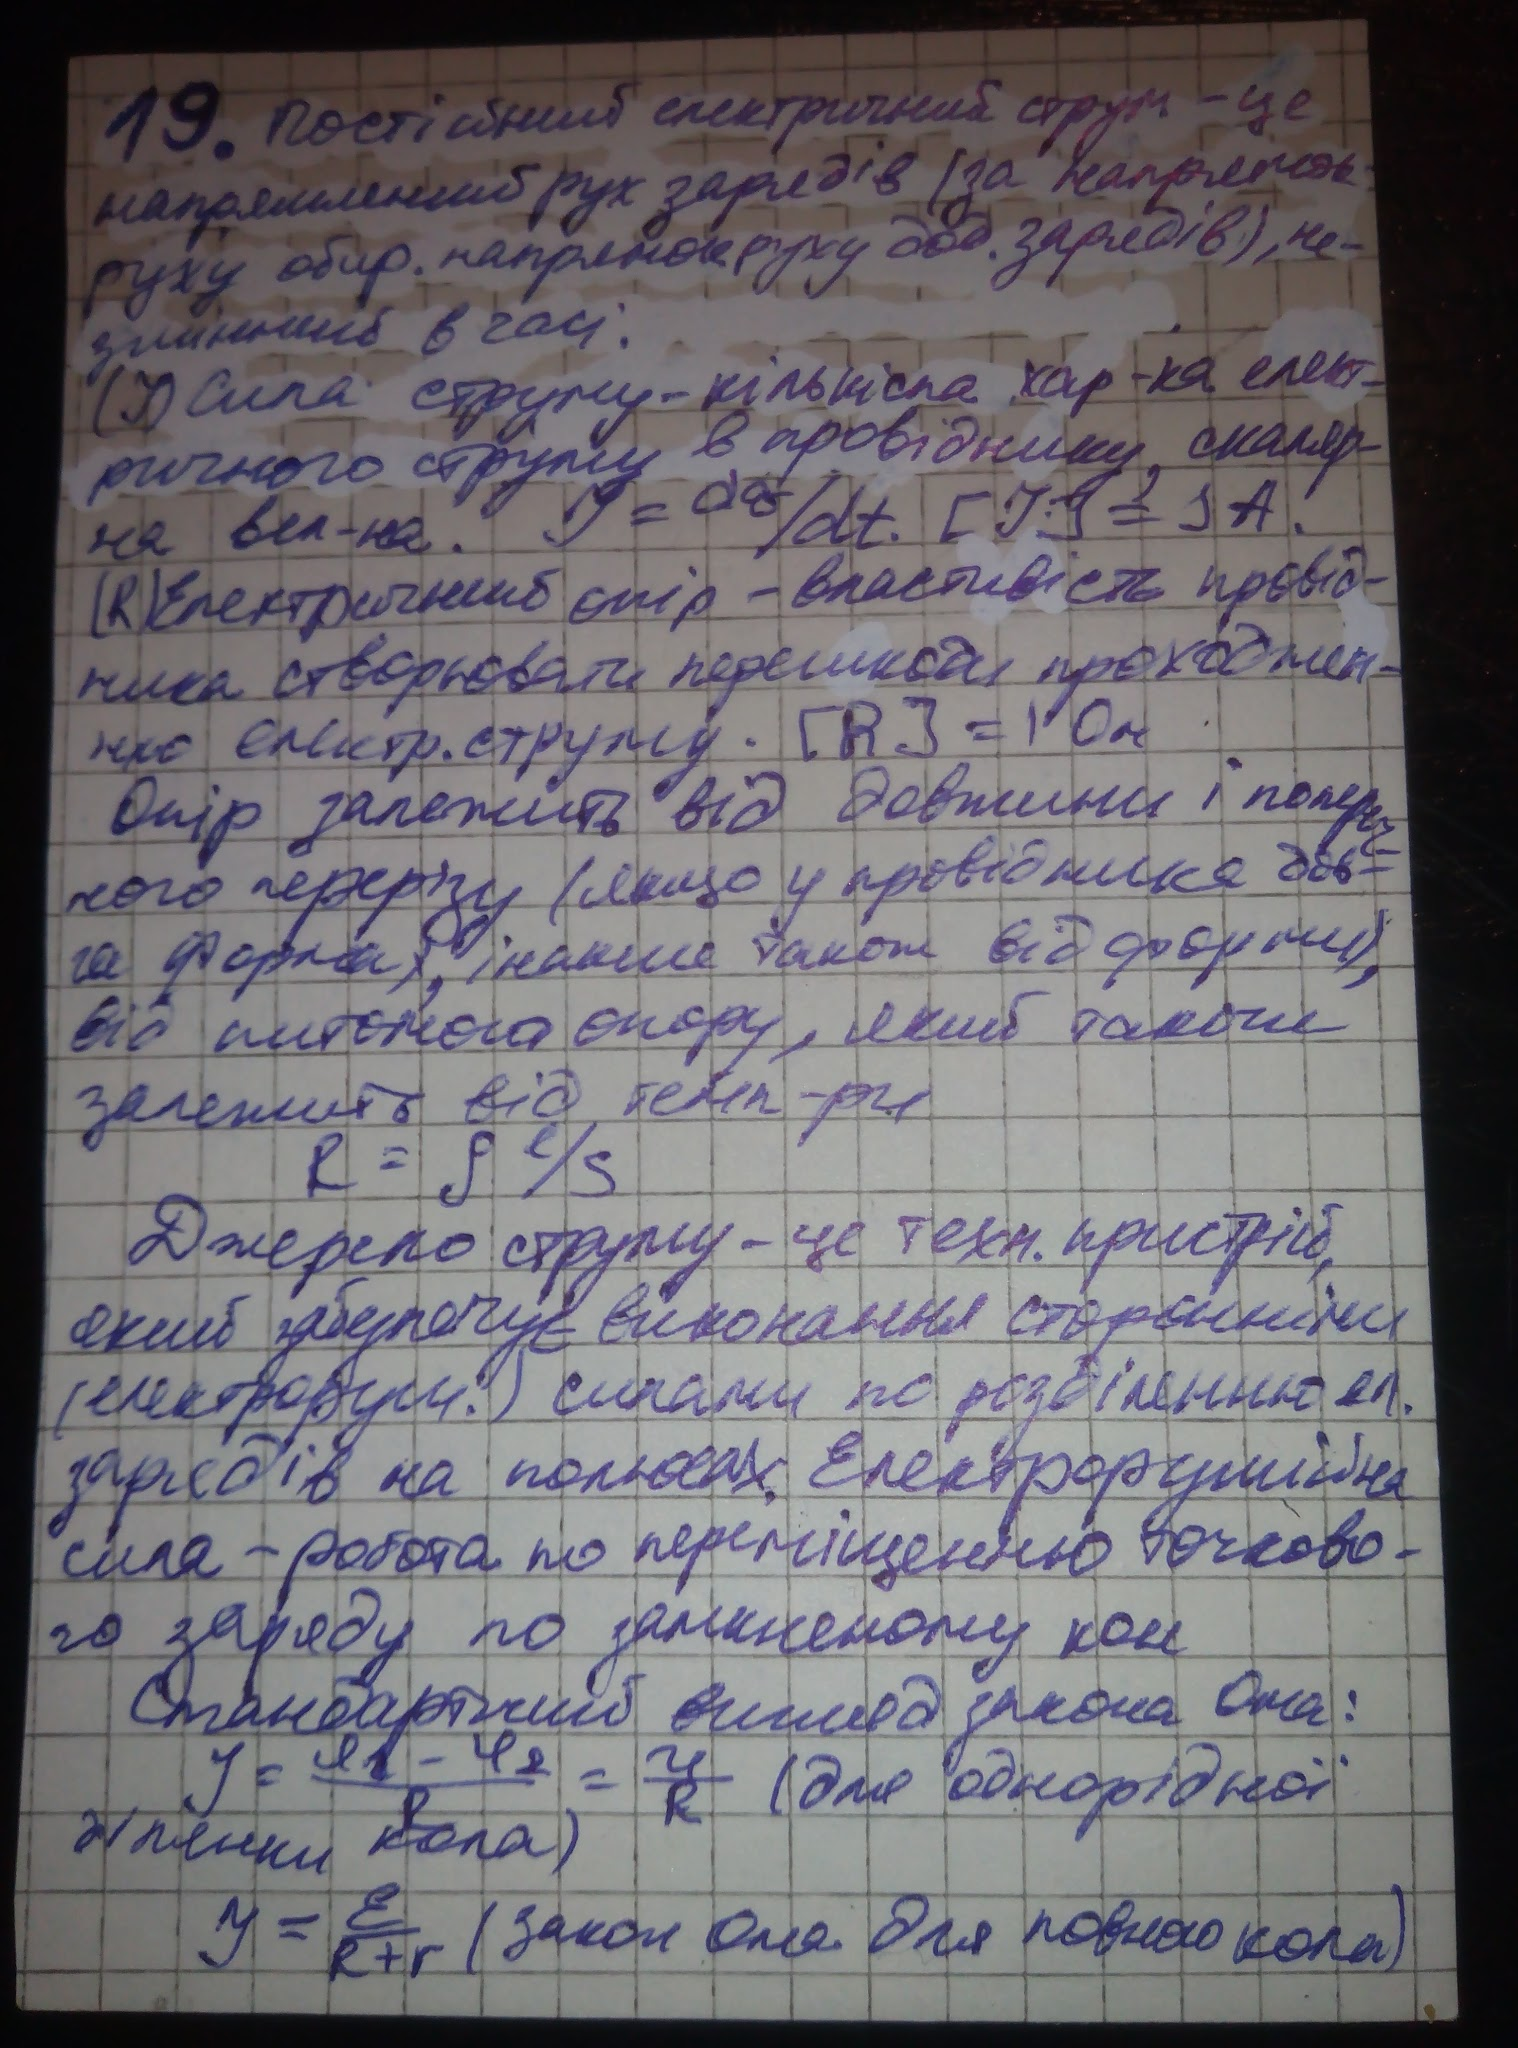 19. Постійний електричний струм - це
напрямлений рух зарядів (за напрямок
руху обир. напрямок руху дод. зарядів), не-
змінний в часі.
(I) Сила струму - кількісна хар-ка елект-
ричного струму в провіднику, скаляр-
на вел-на. I = dq/dt. [I] = 1 A.
(R) Електричний опір - властивість провід-
ника створювати перешкоди проходжен-
ню електр. струму. [R] = 1 Ом
Опір залежить від довжини і попереч-
ного перерізу (якщо у провідника дов-
га форма, інакше також від форми),
від питомого опору, який також
залежить від темп-ри
R = ρ l/S
Джерело струму - це техн. пристрій,
який забезпечує виконання сторонніми
(електроруш.) силами по розділенню ел.
зарядів на полюсах. Електрорушійна
сила - робота по переміщенню точково-
го заряду по замкненому кол
Стандартний вигляд закона Ома:
I = φ1 - φ2 / R = U / R (для однорідної
ділянки кола)
I = ε / R + r (закон Ома для повного кола)